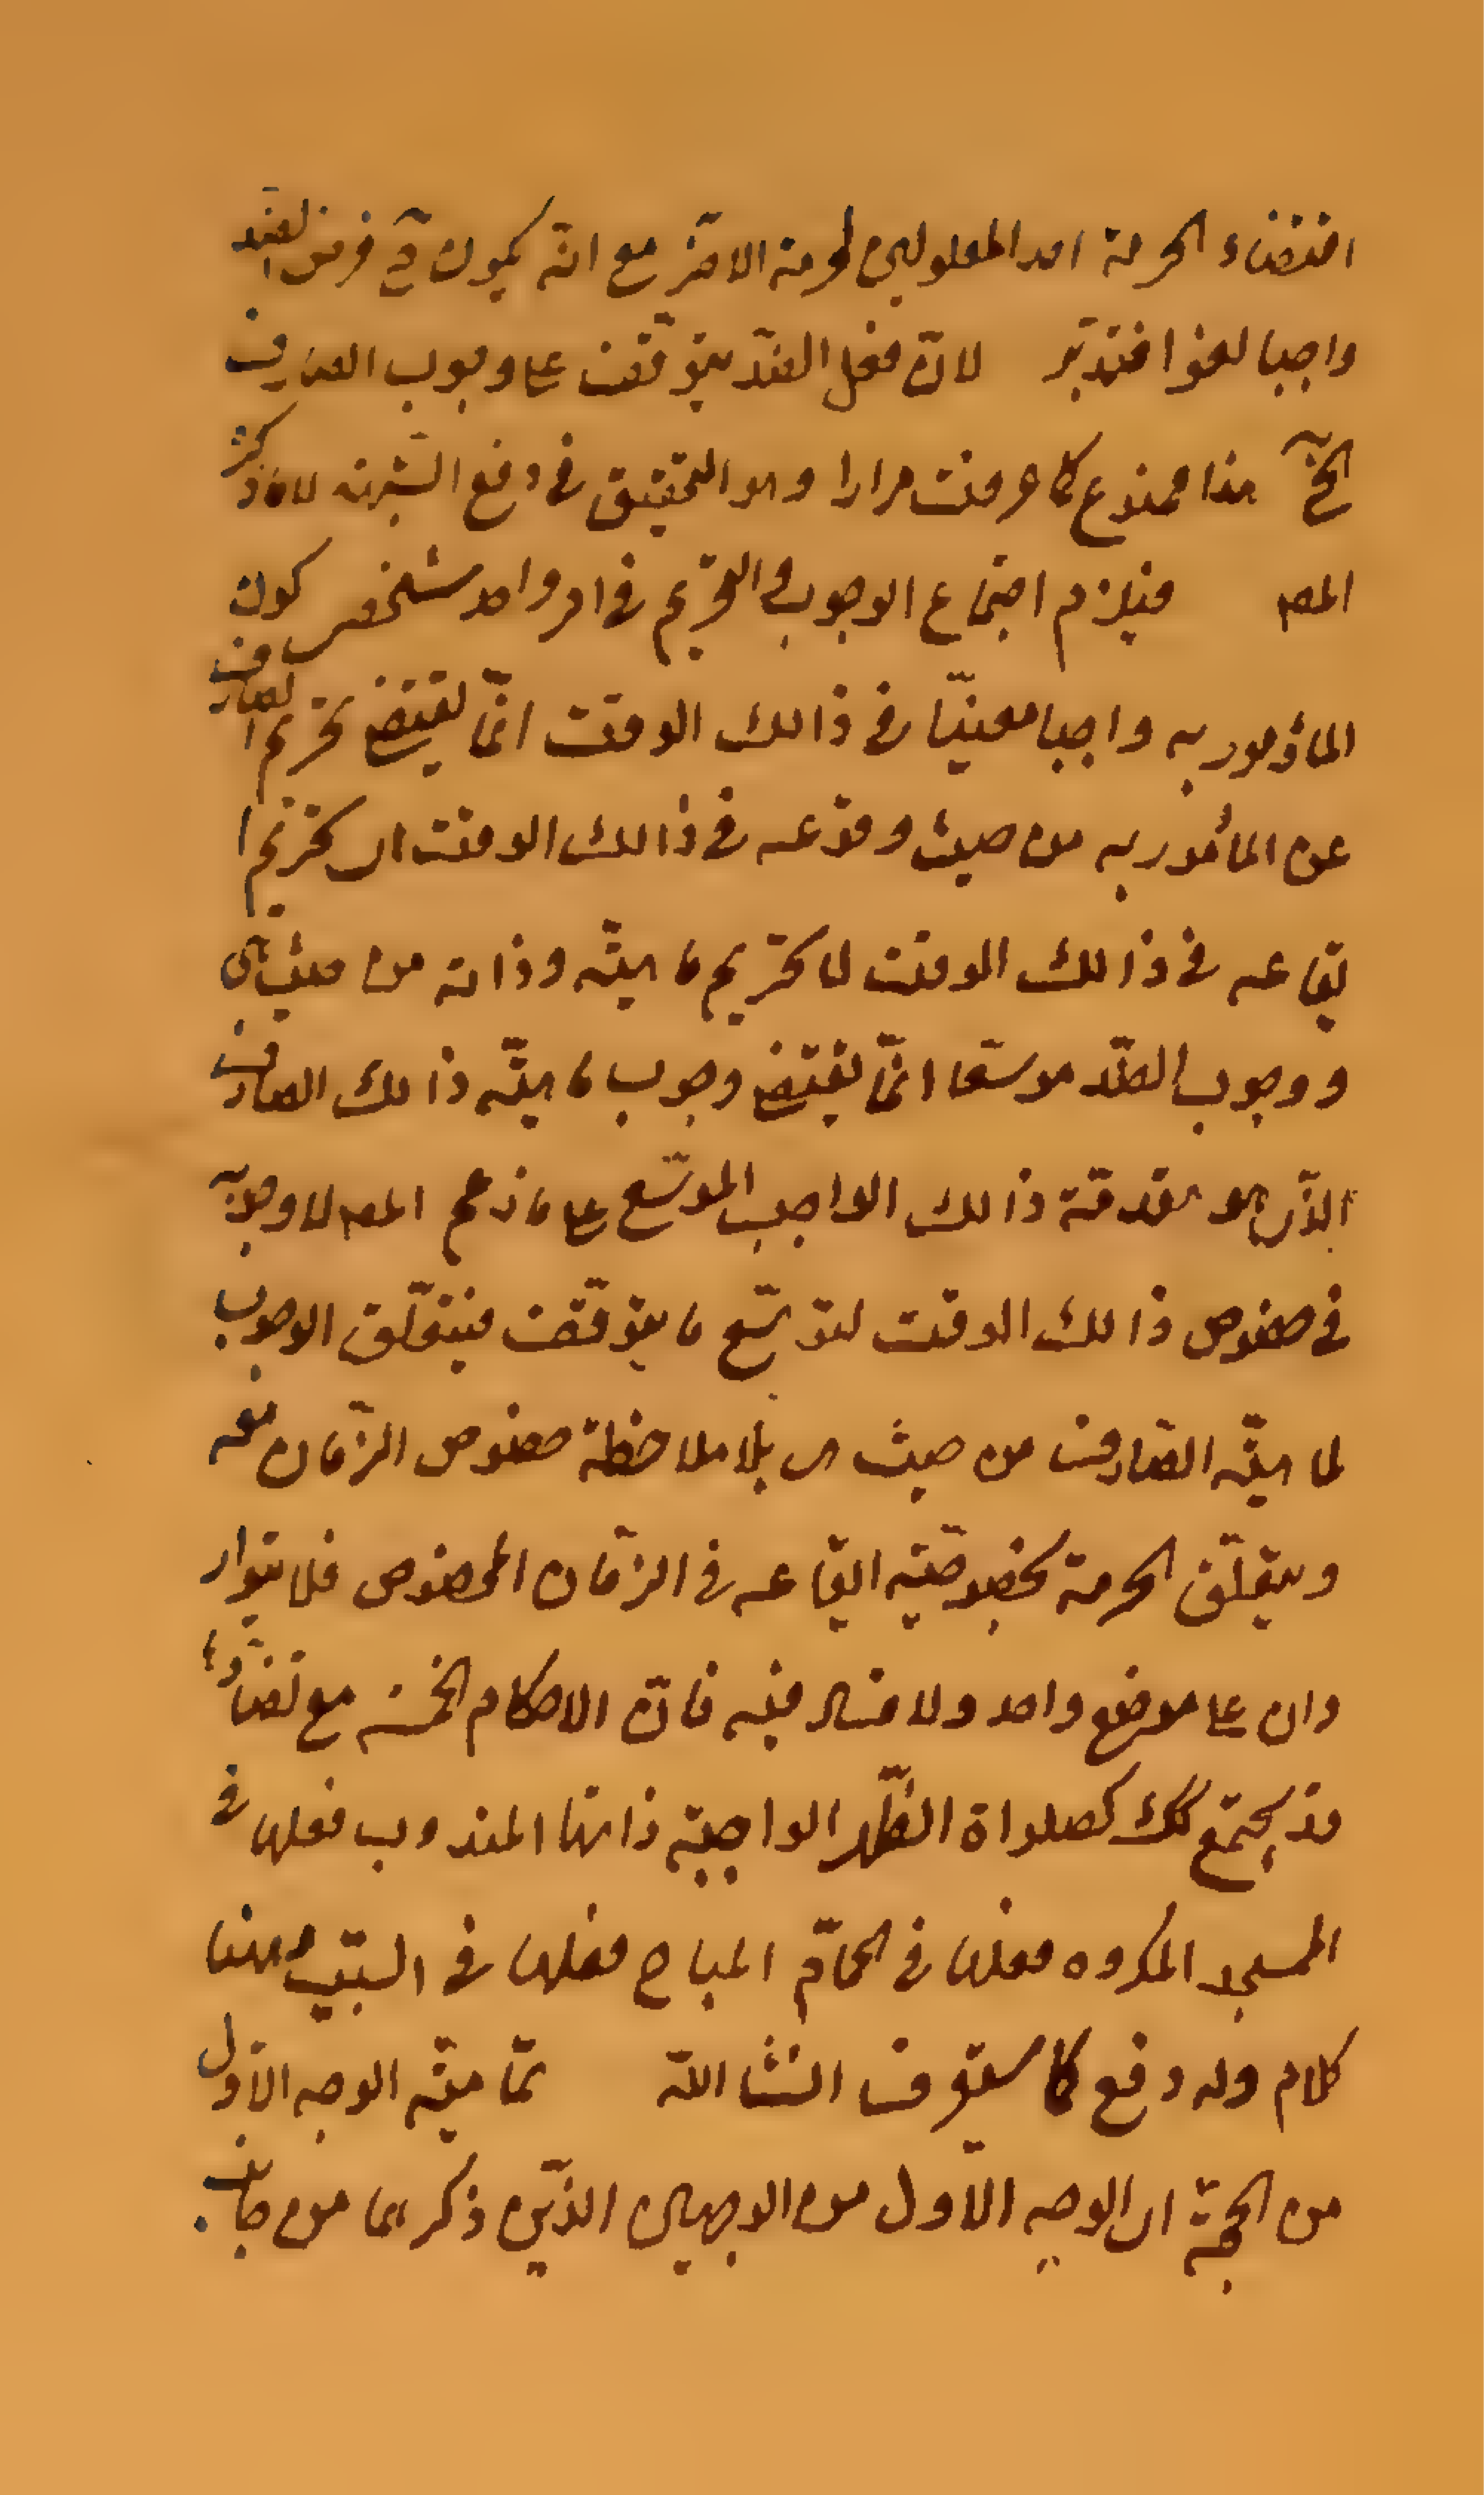 اقتضاء الحرمة احد المعلولين لحرمة الاخر مع انه يكون في فرض الضد
واجبا لغوا فتدبر لان فعل الضد يتوقف على وجوب الصارف
الخ هذا ممنوع كما عرفت مرارا وهو التحقيق في دفع الشبهة لا ما ذكره
المص فيلزم اجتماع الوجوب والتحريم في امر واحد شخصى كون
الماؤمور به واجبا معينّا في ذالك الوقت انّما يقتضى تحريم الصارف
عن المأمور به من حيث وقوعه في ذالك الوقت اى تحريم ا
يقاعه في ذالك الوقت لا تحريم ماهيّته وذاته من حيث هى
ووجوب الضّد موسّعا انّما يقتضى وجوب ماهيّته ذالك الصارف
الذّى هو مقدمة ذالك الواجب الموسّع على ما زعم المص لا وجوبه
في خصوص ذالك الوقت لتوسّع ما يتوقّف فيتعلّق الوجوب
لماهيّته الصّارف من حيث هى بلا ملاحظة خصوص الزّمان معه
ويتعلّق الحرمة بخصوصيّته ايقاعه في الزّمان المخصوص فلا يتوار
دان على موضع واحد ولا فساد فيه فانّ الاحكام الخمسة مع تضادّها
قد يجتمع كك كصلواة الظّهر الواجبة ذاتها المندوب فعلها في
المسجد المكروه فعلها في الحمّام المباح فعلها في البيت وههنا
كلام وله دفع كما ستعرف انشا اللّه تماميّته الوجه الاوّل
من الحجّة اى الوجه الاوّل من الوجهين الذّين ذكرهما من جانب